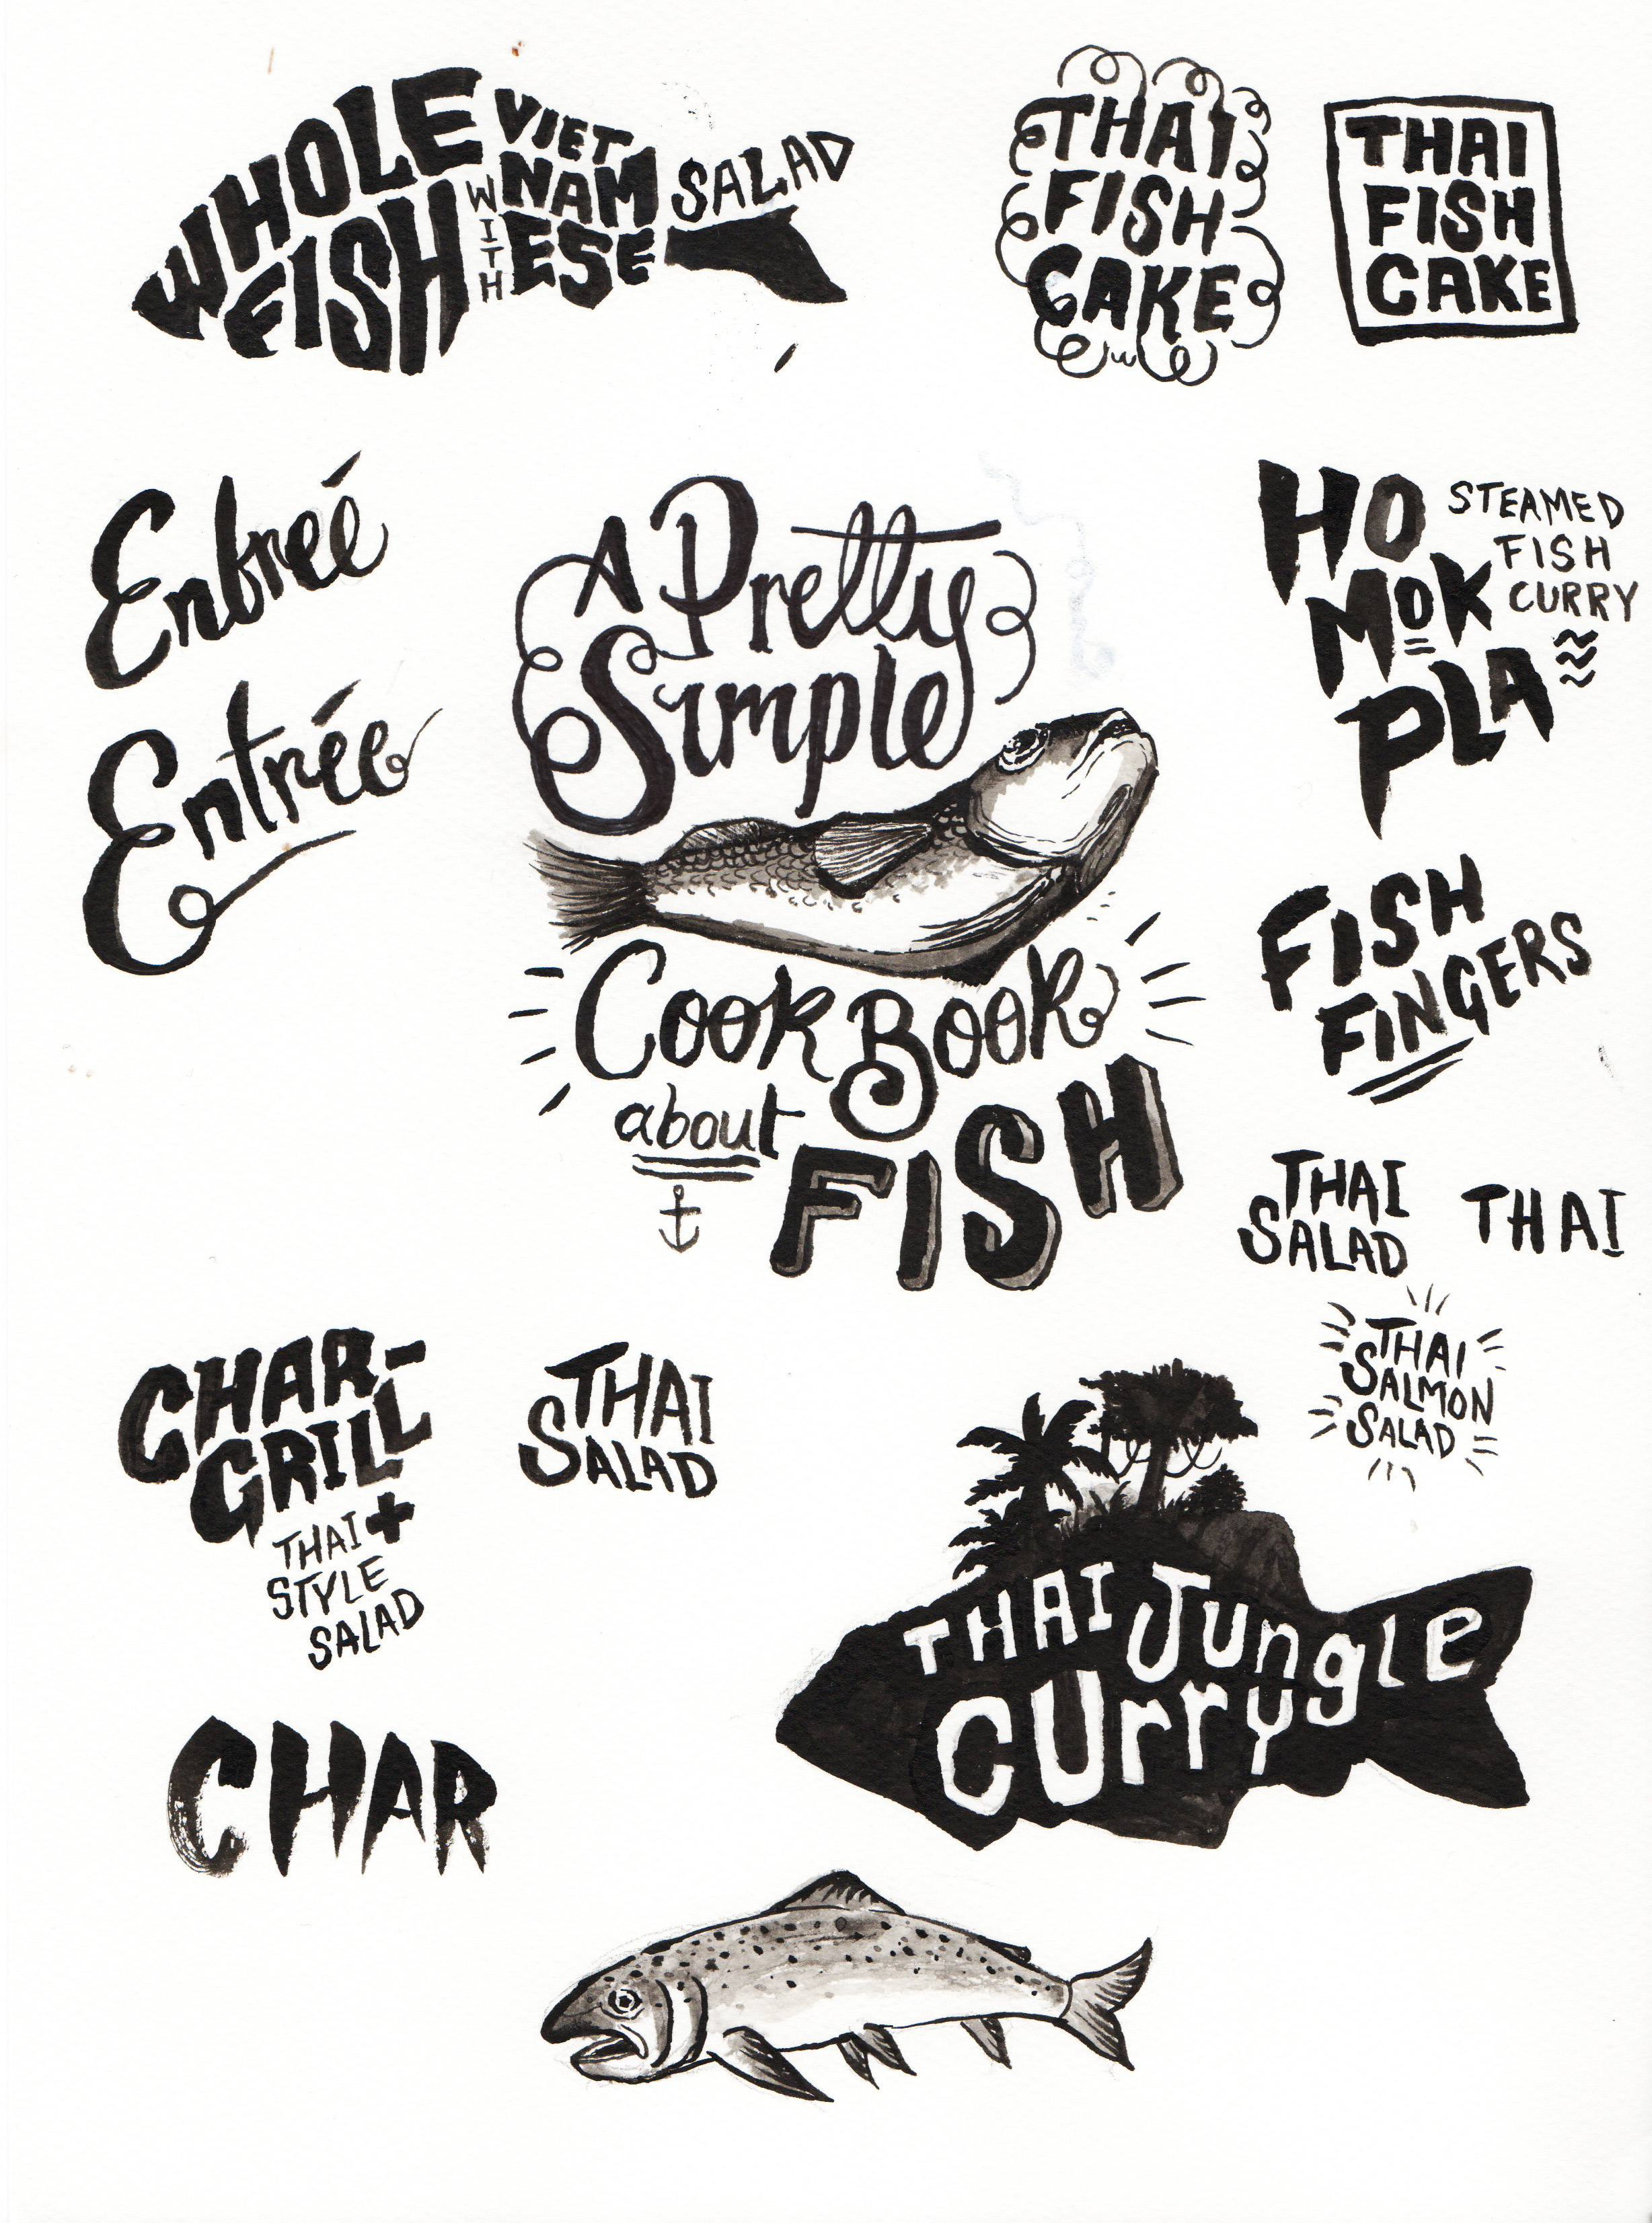 WHOLE
FISH
WITH
VIET
NAM
ESE
SALAD
THAI
FISH
CAKE
THAI
FISH
CAKE
Entreé
Entrée
A Pretty
Simple
CookBook
about
FISH
HO
MOK
PLA
STEAMED
FISH
CURRY
FISH
FINGERS
THAI
SALAD
THAI
THAI
SALMON
SALAD
CHAR-
GRILL
+
THAI
STYLE
SALAD
THAI
SALAD
THAI Jungle
Curry
CHAR